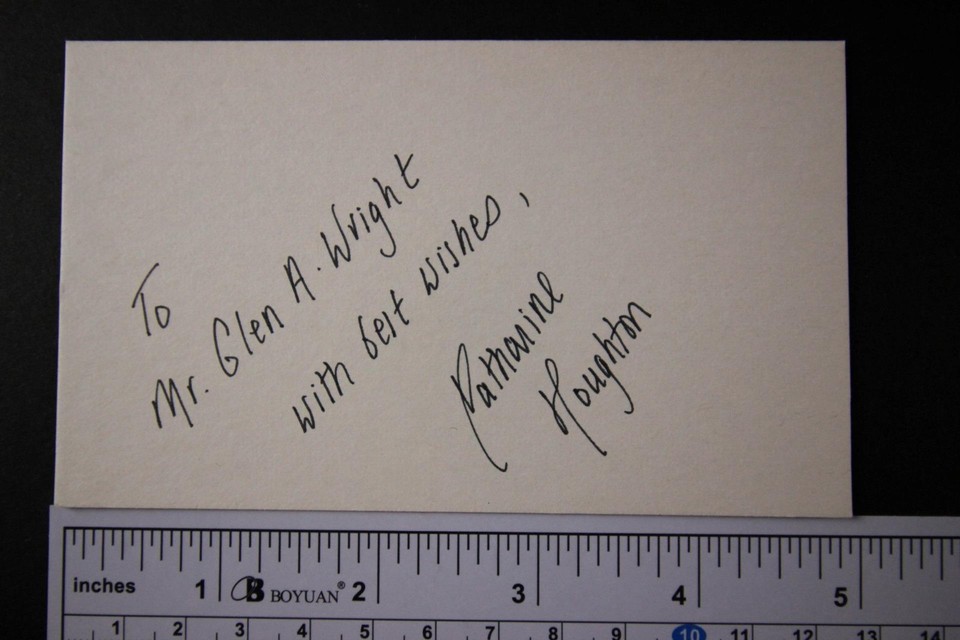 To
Mr. Glen A. Wright
with best wishes,
Katharine
Houghton
inches 1 B BOYUAN® 2 3 4 5
1 2 3 4 5 6 7 8 9 10 11 12 13 14